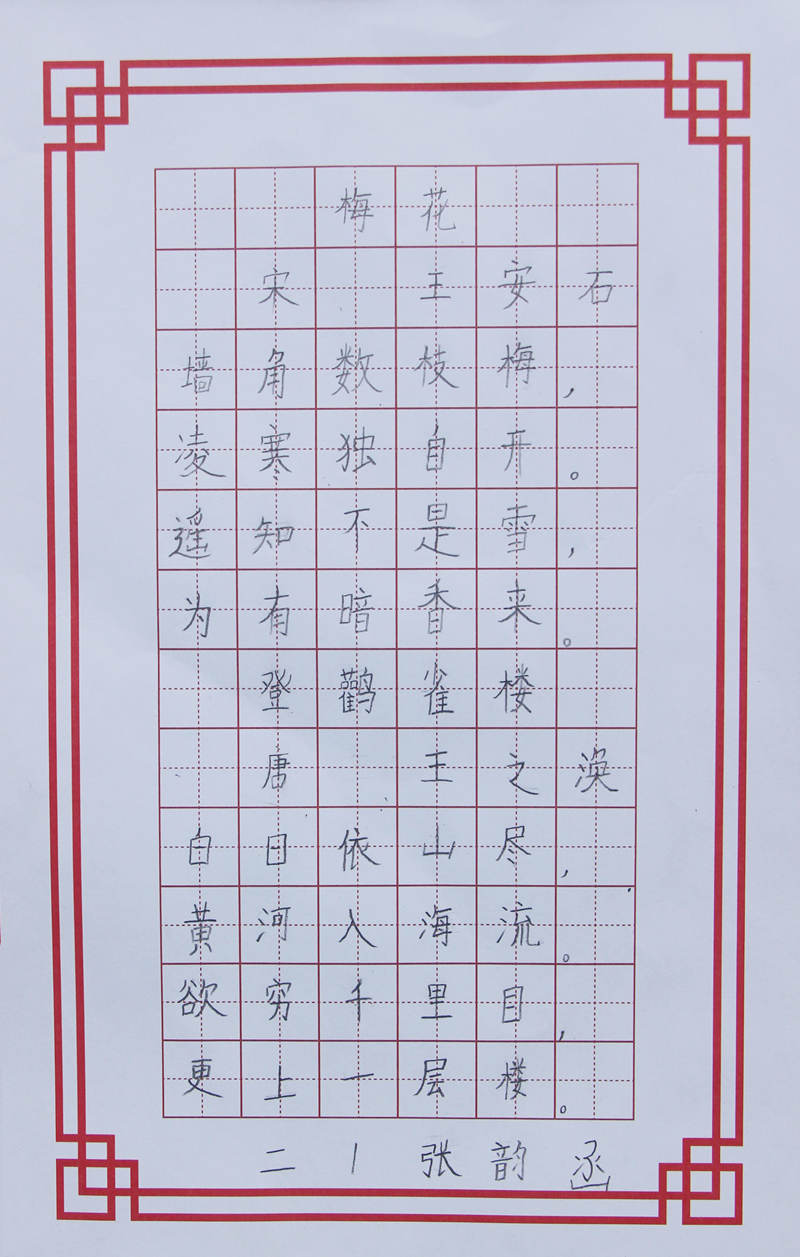 梅花
宋 王安石
墙角数枝梅，
凌寒独自开。
遥知不是雪，
为有暗香来。
登鹳雀楼
唐 王之涣
白日依山尽，
黄河入海流。
欲穷千里目，
更上一层楼。
二 1 张韵涵